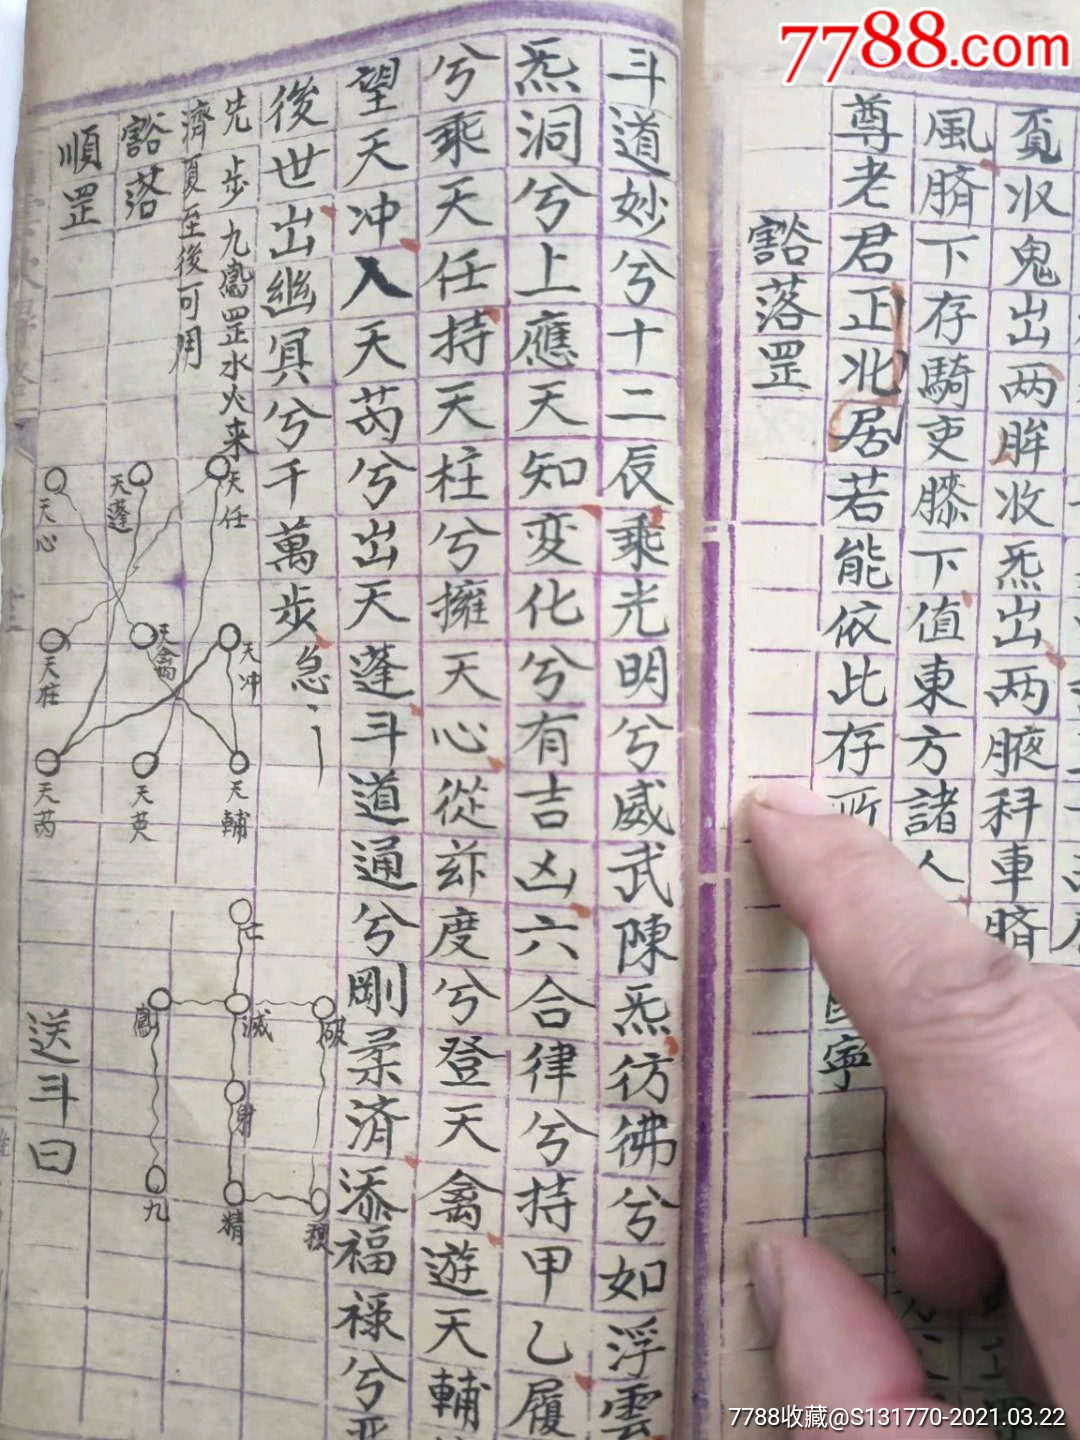 7788.com
覔収鬼出两眸收炁出两腋科車臍
風臍下存騎吏膝下值東方諸人
尊老君正北居若能依此存所
寧
豁落罡
斗道妙兮十二辰乘光明兮威武陳炁彷彿兮如浮雲
炁洞兮上應天知变化兮有吉凶六合律兮持甲乙履
兮乘天任持天柱兮擁天心從茲度兮登天禽遊天輔
望天冲入天芮兮出天蓬斗道通兮剛柔済添福禄兮
後世出幽冥兮千萬步急
先步九鳳罡水火来
濟夏至後可用
豁落
順罡
天任
天蓬
天心
天冲
天禽
天柱
天輔
天英
天芮
亡
破
滅
鳳
身
穢
精
九
送斗曰
7788收藏@S131770-2021.03.22